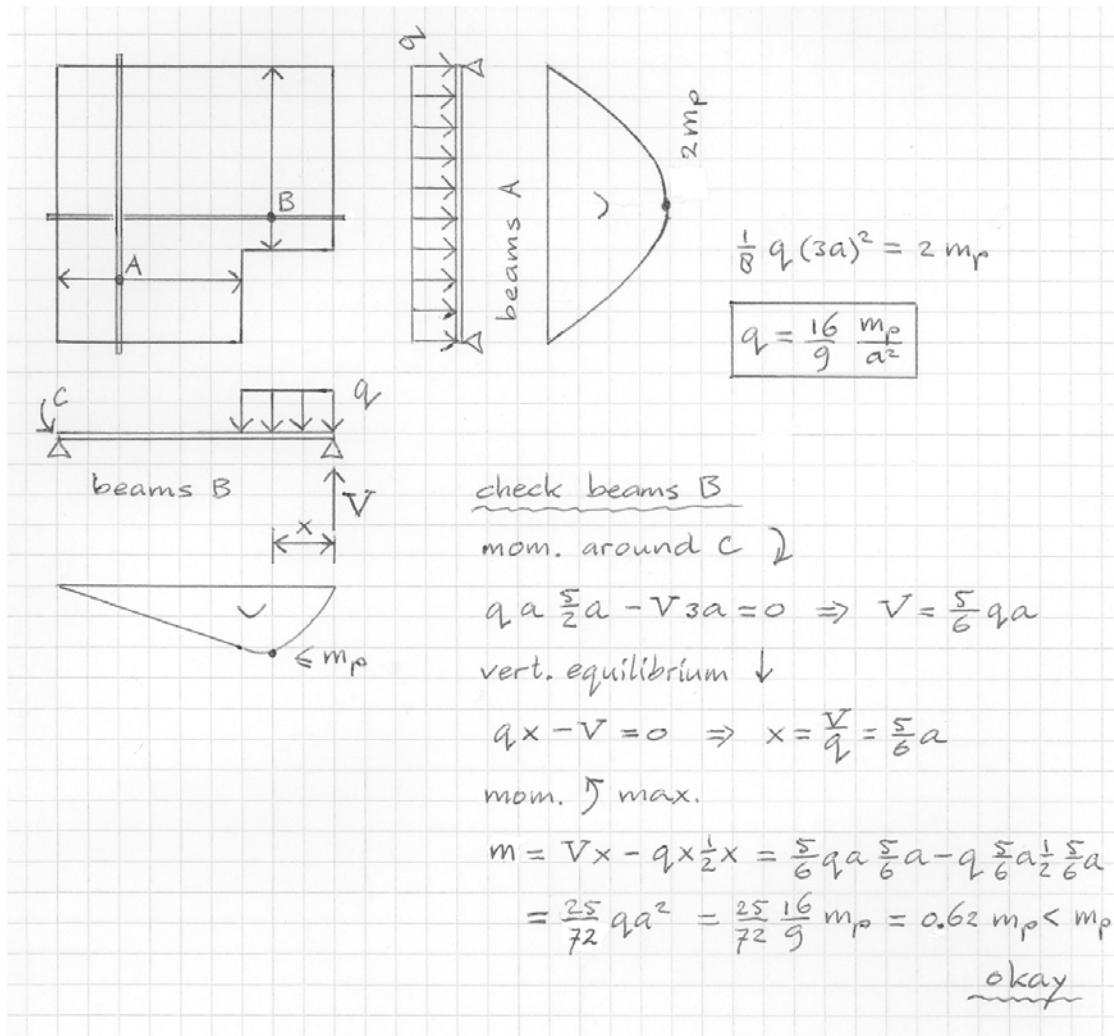 q
B
A
beams A
2 mp
1/8 q (3a)² = 2 mp
q = 16/9 mp/a²
C
q
beams B
V
x
≤ mp
check beams B
mom. around C ⤵
q a 5/2 a - V 3a = 0 ⇒ V = 5/6 qa
vert. equilibrium ↓
qx - V = 0 ⇒ x = V/q = 5/6 a
mom. ⤴ max.
m = Vx - qx 1/2 x = 5/6 qa 5/6 a - q 5/6 a 1/2 5/6 a
= 25/72 qa² = 25/72 16/9 mp = 0.62 mp < mp
okay